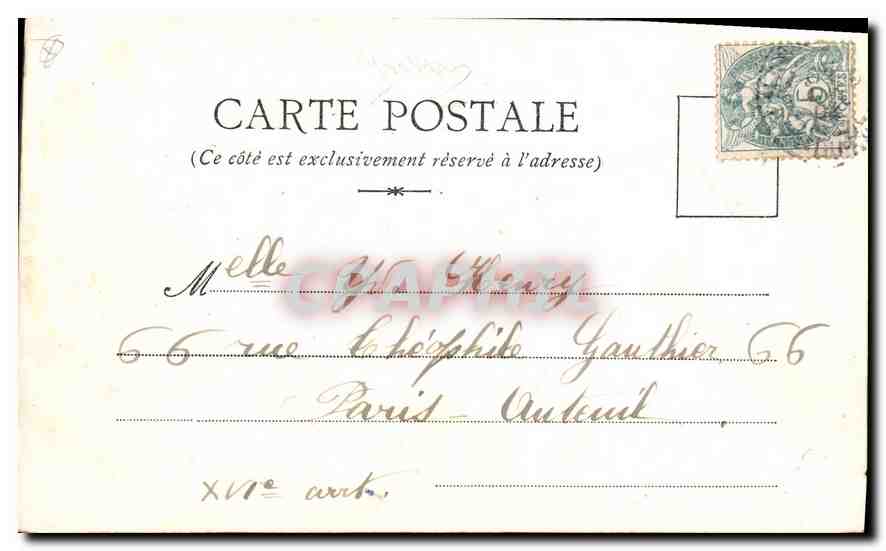 CARTE POSTALE
(Ce côté est exclusivement réservé à l'adresse)
Melle Yv. Henry
66 rue Théophile Gauthier 66
Paris-Auteuil
XVIe arrt.
5